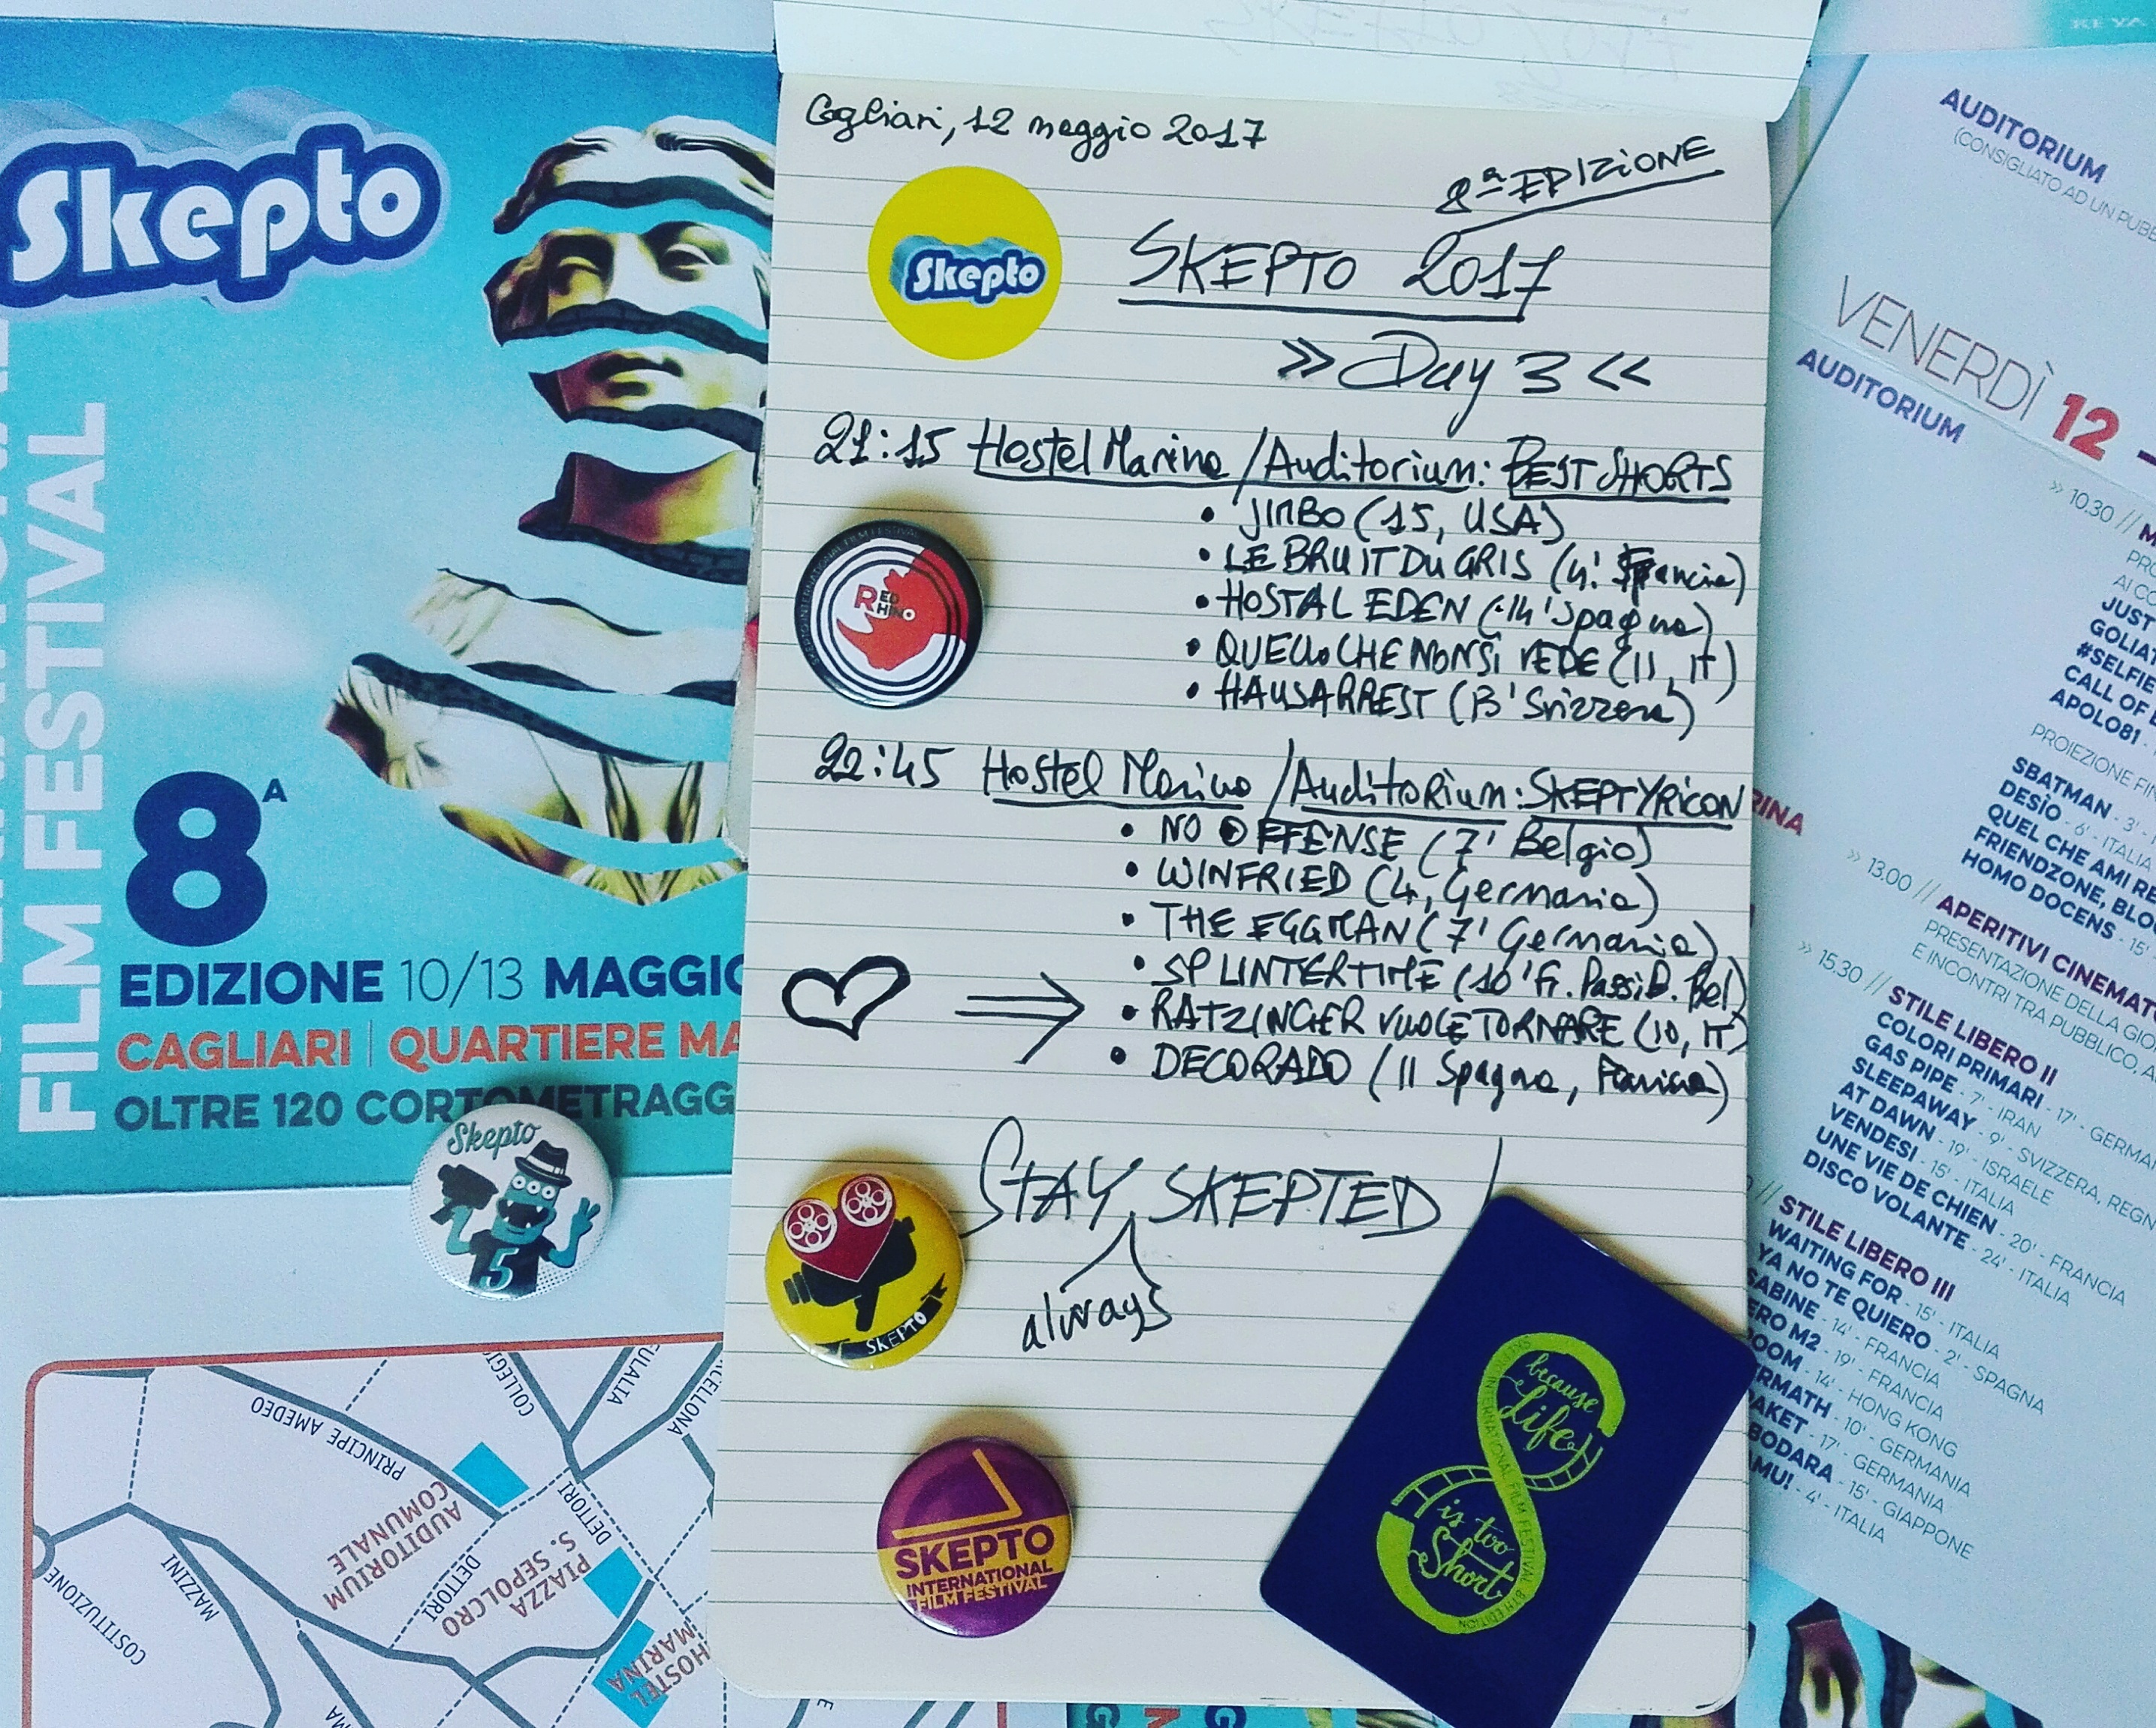 Skepto
FILM FESTIVAL
8A
EDIZIONE 10/13 MAGGIO
CAGLIARI | QUARTIERE MA
OLTRE 120 CORTOMETRAGG
Skepto
5
PRINCIPE AMEDEO
COLLEGI
EULALIA
CELLONA
AUDITORIUM
COMUNALE
DETTORI
DETTORI
PIAZZA
S. SEPOLCRO
MAZZINI
COSTITUZIONE
HOSTEL
MARINA
Cagliari, 12 maggio 2017
8ª EDIZIONE
Skepto
SKEPTO 2017
>> Day 3 <<
21:15 Hostel Marina / Auditorium: BEST SHORTS
• JIMBO (15, USA)
• LE BRUIT DU GRIS (4' Francia)
• HOSTAL EDEN (14' Spagna)
• QUELLO CHE NON SI VEDE (11, IT)
• HAUSARREST (13' Svizzera)
RED
RHINO
SKEPTO INTERNATIONAL FILM FESTIVAL
22:45 Hostel Marina / Auditorium: SKEPTYRICON
• NO OFFENSE (7' Belgio)
• WINFRIED (4, Germania)
• THE EGGMAN (7' Germania)
• SPLINTERTIME (10' Fr. Paesi B. Bel)
• RATZINGER VUOLE TORNARE (10, IT)
• DECORADO (11 Spagna, Francia)
STAY SKEPTED!
always
SKEPTO
SKEPTO
INTERNATIONAL
FILM FESTIVAL
because
Life
is too
Short
SKEPTO INTERNATIONAL FILM FESTIVAL 8TH EDITION
AUDITORIUM
(CONSIGLIATO AD UN PUBB
VENERDÌ 12 -
AUDITORIUM
>> 10.30 // M
PRO
AI CO
JUST
GOLIAT
#SELFIE
CALL OF
APOLO81 -
PROIEZIONE FIN
SBATMAN - 3' -
DESÌO - 6' - ITALIA
QUEL CHE AMI RE
FRIENDZONE, BLOC
HOMO DOCENS - 15' -
RINA
>> 13.00 // APERITIVI CINEMAT
PRESENTAZIONE DELLA GIO
E INCONTRI TRA PUBBLICO, A
>> 15.30 // STILE LIBERO II
COLORI PRIMARI - 17' - GERMA
GAS PIPE - 7' - IRAN
SLEEPAWAY - 9' - SVIZZERA, REGN
AT DAWN - 19' - ISRAELE
VENDESI - 15' - ITALIA
UNE VIE DE CHIEN - 20' - FRANCIA
DISCO VOLANTE - 24' - ITALIA
// STILE LIBERO III
WAITING FOR - 15' - ITALIA
YA NO TE QUIERO - 2' - SPAGNA
SABINE - 14' - FRANCIA
ERO M2 - 19' - FRANCIA
OOM - 14' - HONG KONG
ERMATH - 10' - GERMANIA
AKET - 17' - GERMANIA
BODARA - 15' - GIAPPONE
AMU! - 4' - ITALIA